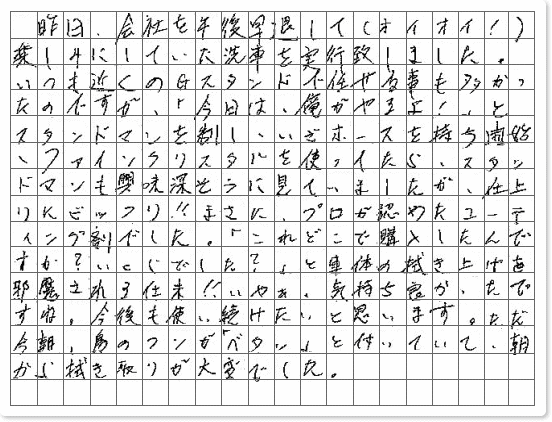 昨日、会社を午後早退して(オイオイ!)
楽しみにしていた洗車を実行致しました。
いつも近くのGスタンドで任せる事も多かっ
たのですが、「今日は、俺がやるよ!」と
スタンドマンを制し、いざホースを持ち開始
、ファインクリスタルを使ってたら、スタン
ドマンも興味深そうに見ていましたが、仕上
りにビックリ!!まさに、プロが認めたコーテ
ィング剤でした。「これどこで購入したんで
すか?いくらでした?」と車体の拭き上げを
邪魔される仕末!!いやぁ、気持ち良かったで
すね。今後も使い続けたいと思います。ただ
今朝、鳥のフンが「ベタン」と付いていて、朝
から拭き取りが大変でした。